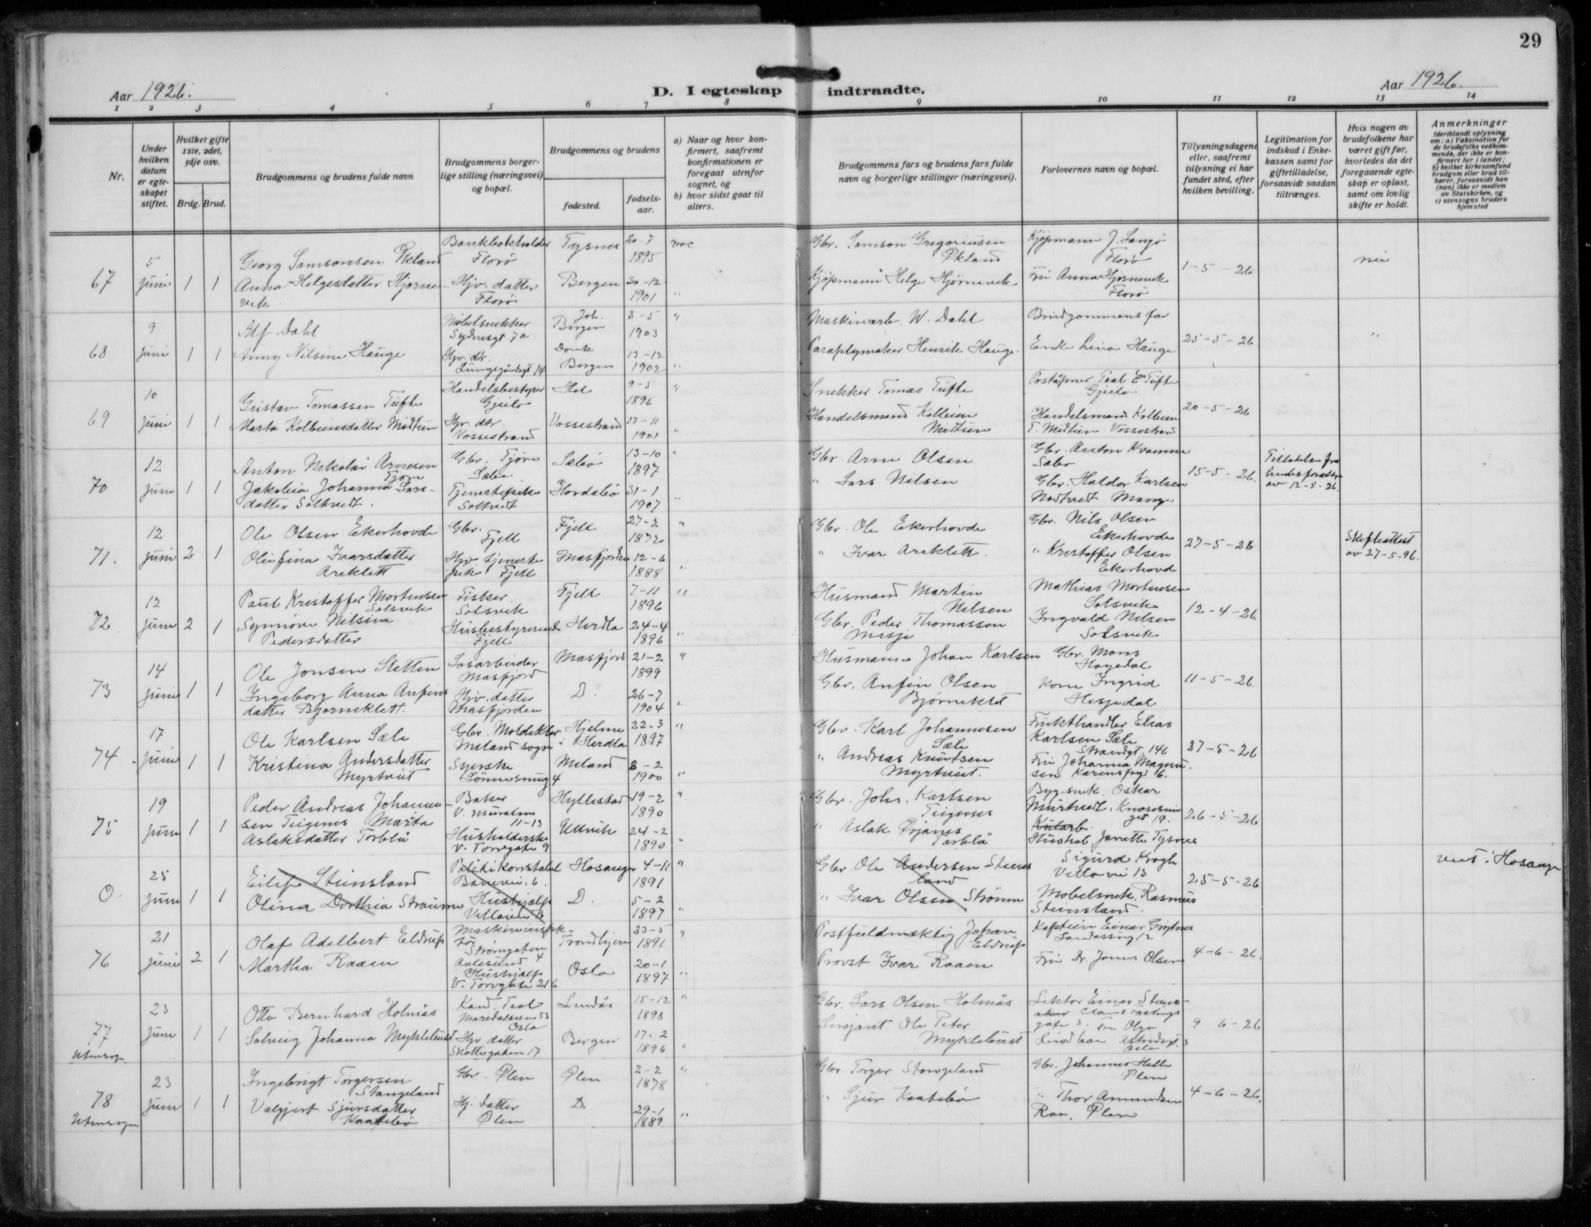 29
Aar 1926.
D. I egteskap indtraadte.
Aar 1926.
1 2 3 4 5 6 7 8 9 10 11 12 13 14
Nr.
Under hvilken datum er egteskapet stiftet.
Hvilket gifte 1ste, 2det, 3dje osv.
Brdg. Brud.
Brudgommens og brudens fulde navn
Brudgommens borgerlige stilling (næringsvei) og bopæl.
Brudgommens og brudens
fødested.
fødselsaar.
a) Naar og hvor konfirmert, saafremt konfirmationen er foregaat utenfor sognet, og
b) hvor sidst gaat til alters.
Brudgommens fars og brudens fars fulde navn og borgerlige stillinger (næringsvei).
Forlovernes navn og bopæl.
Tillysningsdagene eller, saafremt tillysning ei har fundet sted, efter hvilken bevilling.
Legitimation for indskud i Enkekassen samt for giftetilladelse, forsaavidt saadan tiltrænges.
Hvis nogen av brudefolkene har været gift før, hvorledes da det foregaaende egteskap er opløst, samt om lovlig skifte er holdt.
Anmerkninger
(deriblandt oplysning om: a) Vaksination for de brudefolks vedkommende, der ikke er konfirmert her i landet; b) hvilket kirkesamfund brudgom eller brud tilhører, forsaavidt han (hun) ikke er medlem av Statskirken, og c) utensogns bruders hjemsted
67 5 Juni 1 1
Georg Samsonsen Økland
Bankbokholder Florø
Tysnes
20-7 1895
vac
Gbr. Samson Gregoriusen Økland
Kjøpmann J. Langø Florø
1-5-26
nei
Anna Helgesdatter Hjørnevik
Hjv. datter Florø
Bergen
30-12 1901
"
Kjøpmann Helge Hjørnevik
Fru Anna Hjørnevik Florø
68 9 Juni 1 1
Alf Dahl
Møbelsnekker Sydnesgt 7a
Joh. Bergen
3-5 1903
"
Maskinarb. W. Dahl
Brudgommens far
25-5-26
"
Anny Nilsine Hauge
Hjv. dtr. Lungegårdsgt 14
Domk Bergen
13-12 1902
"
Paraplymaker Henrik Hauge.
Enke Lina Hauge
69 10 Juni 1 1
Gustav Tomassen Tufte
Handelsbestyrer Gjeilo
Hol
9-5 1896
"
Snekker Tomas Tufte
Postaapner Paal E Tufte Gjeilo
20-5-26
Marta Kolbeinsdatter Midtun
Hjv. dtr. Vossestrand
Vossestrand
17-11 1901
"
Handelsmand Kolbein Midtun
Handelsmand Kolbein T. Midtun Vossestrand
70 12 Juni 1 1
Anton Nikolai Arnesen Tjøre
Gbr. Tjøre Sæbø
Sæbø
13-10 1897
"
Gbr. Arne Olsen
Gbr. Anton Kvamme Sæbø
15-5-26.
av 12-5-26.
Jakobia Johanna Larsdatter Soltveit.
Tjenestepike Soltveit
Hordabø
31-1 1907
"
" Lars Nilsen
Gbr. Haldor Karlsen Nødtveit Mange
71. 12 Juni 2 1
Ole Olsen Ekerhovde
Gbr. Fjell
Fjell
27-2 1872
"
Gbr. Ole Ekerhovde
Gbr. Nils Olsen Ekerhovde
27-5-26
Skifteattest av 27-5-26.
Olefina Ivarsdatter Areklett
Hjv tjenestepike Fjell
Masfjorden
12-6 1888
"
" Ivar Areklett.
" Kristoffer Olsen Ekerhovd
72 12 Juni 2 1
Paul Kristoffer Mortensen Solsvik
Fisker Solsvik
Fjell
7-11 1896
"
Husmand Martin Nilsen
Mathias Mortensen Solsvik
12-4-26.
Synnøve Nilsine Pedersdatter
Husbestyrerinde Fjell
Herdla
24-4 1896
"
Gbr. Peder Thomassen Misje
Ingvald Nilsen Solsvik
73 14 Juni 1 1
Ole Jonsen Sletten
Løsarbeider Masfjord
Masfjord
21-2 1899
"
Husmann Johan Karlsen
Gbr. Mons Høyedal
11-5-26.
Ingeborg Anna Anfinsdatter Bjørneklett.
Hjv. datter Masfjorden
D.
26-7 1904
"
Gbr. Anfin Olsen Bjørneklett
Kone Ingrid Hesjedal
74 17 Juni 1 1
Ole Karlsen Sæle
Gbr. Moldeklev Meland sogn
Hjelme i Herdla
22-3 1897
"
Gbr. Karl Johannesen Sæle
Frukthandler Elias Karlsen Sæle Strandgt. 146
27-5-26
Kristina Andersdatter Myrtveit
Syerske Lønnesmug 4
Meland
8-2 1900
"
" Andreas Knutsen Myrtveit.
Fru Johanna Magnussen
75 19 Juni 1 1
Peder Andreas Johannesen Teigenes
Baker V. Muralm. 11-13
Hyllestad
19-2 1890
"
Gbr. Johs. Karlsen Teigenes
Byg.snik. Oskar Murtvedt. 19.
26-5-26
Marta Aslaksdatter Torblå
Husholderske V. Torvgate 9
Ulvik
24-2 1890
"
" Aslak Torblå
Hushol Janette Tysnes
0 25 Juni 1 1
Eilif Steinsland
Politikonstabel
Hosanger
4-11 1891
"
Gbr. Ole Andersen Steinsland
Sigurd Krogh Vellevei 13
25-5-26
viet i Hosanger
Olina Dorthia Straume
Hushjelp
D.
5-2 1897
"
" Ivar Olsen Strømme
Møbelsnek. Rasmus Steinsland.
76 21 Juni 2 1
Olaf Adelbert Eldrup
Strømgaten 4 Aalesund
Trondhjem
23-5 1891
"
Postfuldmektig Johan Eldrup
Kaptein Einar
4-6-26.
Martha Raaen
Hushjelp V. Torvgate 21 b
Oslo
20-1 1897
"
Provst Ivar Raaen
Fru Dr. Jonas Olsen
77 Utensogn 23 Juni 1 1
Otto Bernhard Holmås
Kand. Teol Maridalsveien 53 Oslo
Lindås
15-12 1898
"
Gbr. Lars Olsen Holmås
Lektor Einar
9-6-26
Solveig Johanna Myklebust
Hjv datter Skottegaten 17
Bergen
17-2 1896
"
Serjant Ole Peter Myklebust
Oslo
78 Utensogn 23 Juni 1 1
Ingebrigt Torgersen Stangeland
Gbr. Ølen
Ølen
2-2 1878
"
Gbr Torger Stangeland
Gbr. Johannes Helle Ølen
4-6-26.
Valgjert Sjursdatter Kaatebø
Hj. datter Ølen
D.
29-1 1889
"
" Sjur Kaatebø
" Thor Amundsen Ølen